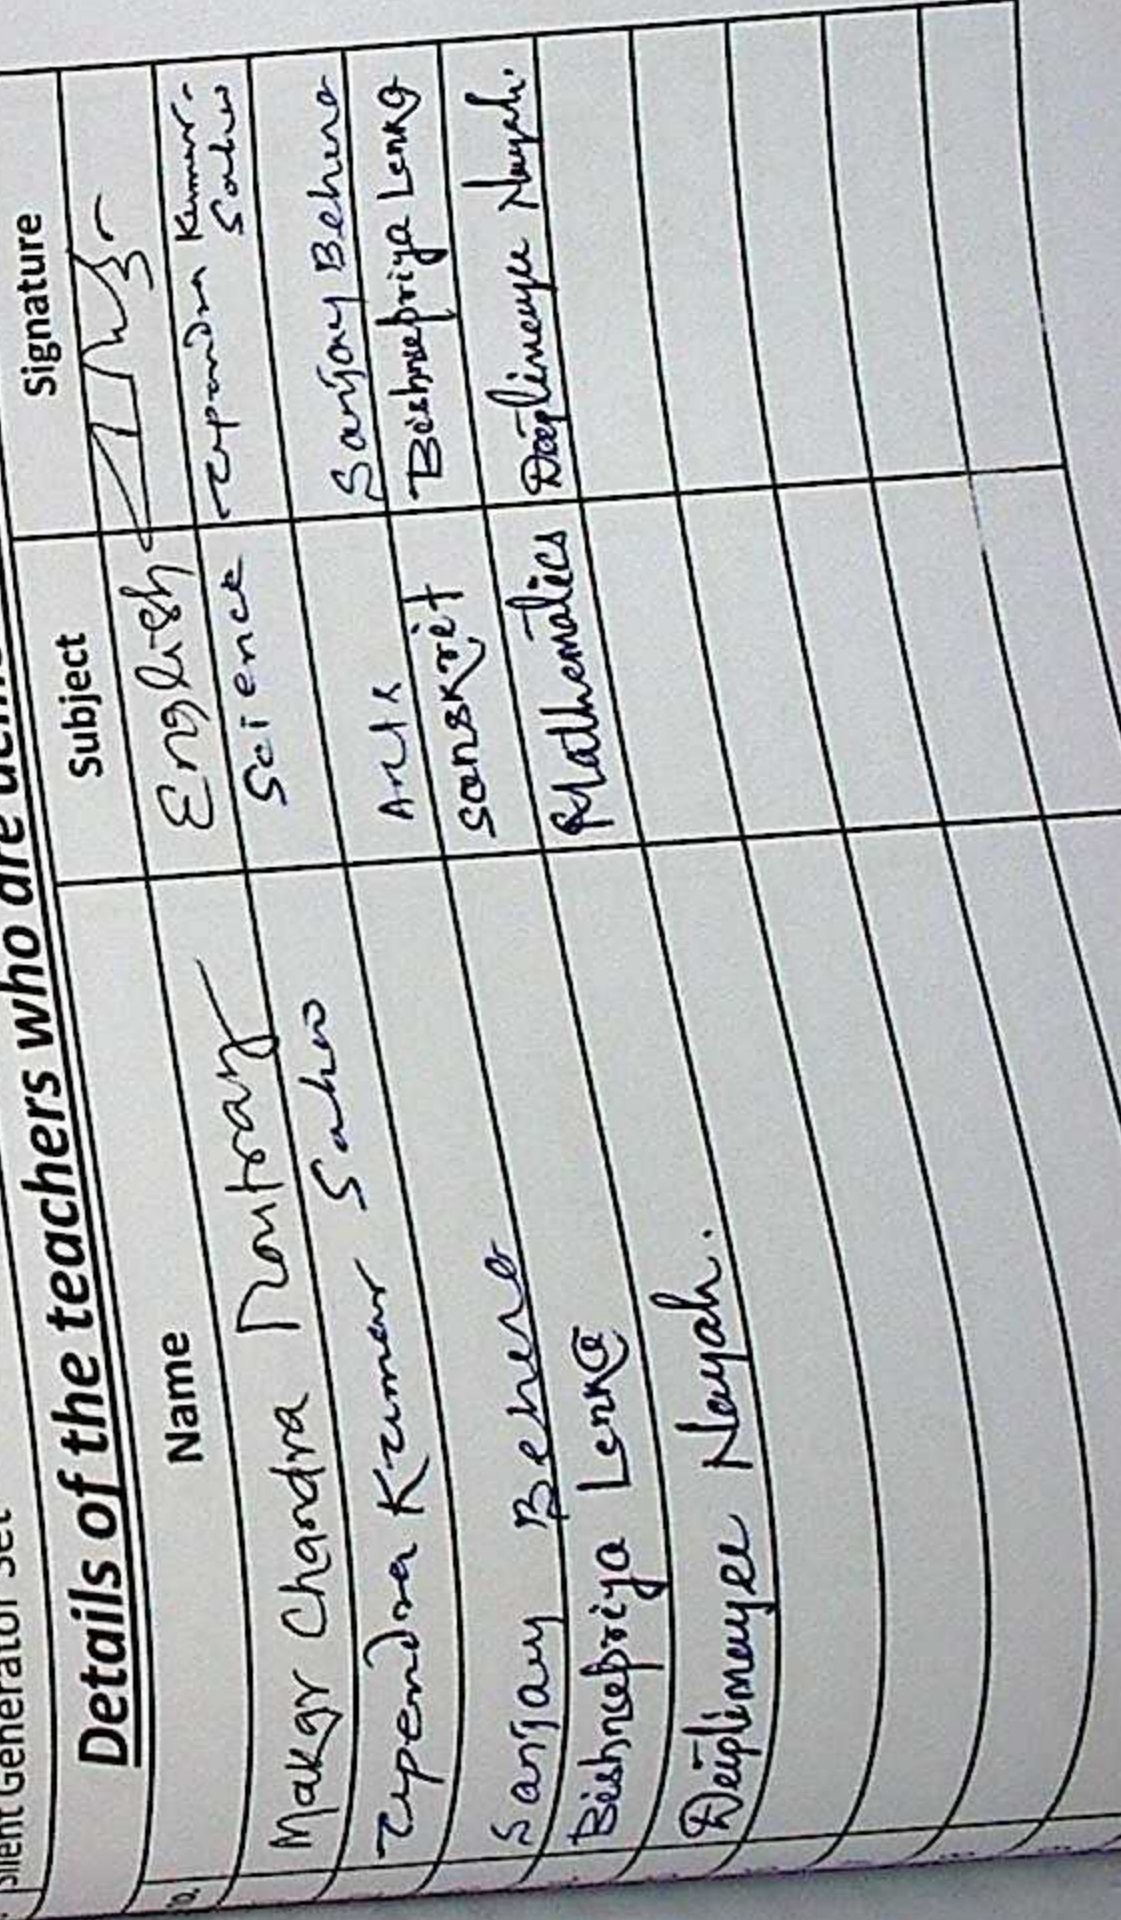 Silent Generator Set
Details of the teachers who are
Name Subject Signature
Makar Chandra Routray English
Upendra Kumar Sahoo Science Upendra Kumar Sahoo
Sanjay Behera Arts Sanjay Behera
Bishnupriya Lenka Sanskrit Bishnupriya Lenka
Deeptimayee Nayak. Mathematics Deeptimayee Nayak.